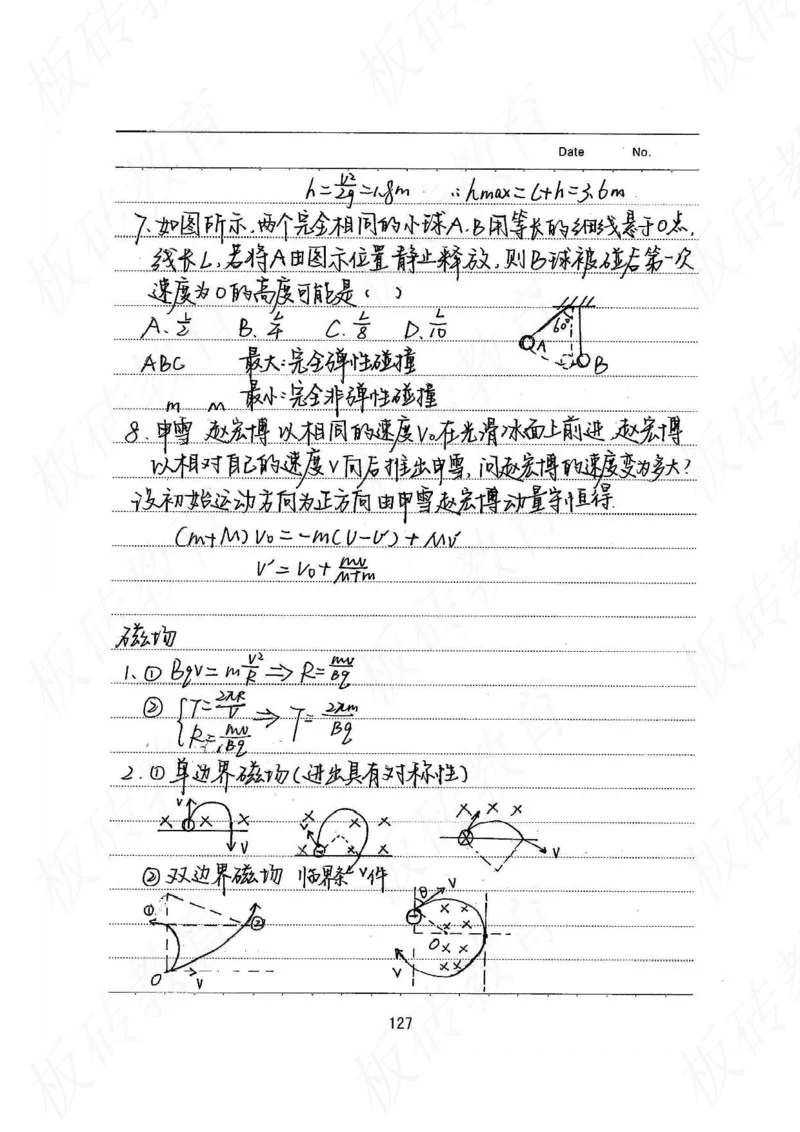 Date No.
h=v²/2g=1.8m ∴hmax=L+h=3.6m
7.如图所示,两个完全相同的小球A、B用等长的细线悬于O点,
线长L,若将A由图示位置静止释放,则B球被碰后第一次
速度为0的高度可能是( )
A.L/2 B.L/4 C.L/8 D.L/10
60°
A
B
ABC 最大:完全弹性碰撞
最小:完全非弹性碰撞
m M
8.申雪 赵宏博以相同的速度V₀在光滑冰面上前进 赵宏博
以相对自己的速度V向后推出申雪,问赵宏博的速度变为多大?
设初始运动方向为正方向由申雪赵宏博动量守恒得
(m+M)V₀=-m(V-V′)+MV′
V′=V₀+mv/M+m
磁场
1.① Bqv=mv²/R⇒R=mv/Bq
② {T=2πR/V
R=mv/Bq ⇒ T=2πm/Bq
2.①单边界磁场(进出具有对称性)
V × × × V
V × × × × × × V
× × × V
②双边界磁场 临界条件
① ② O V
θ V × × × × O × × × × V
127
板砖教育